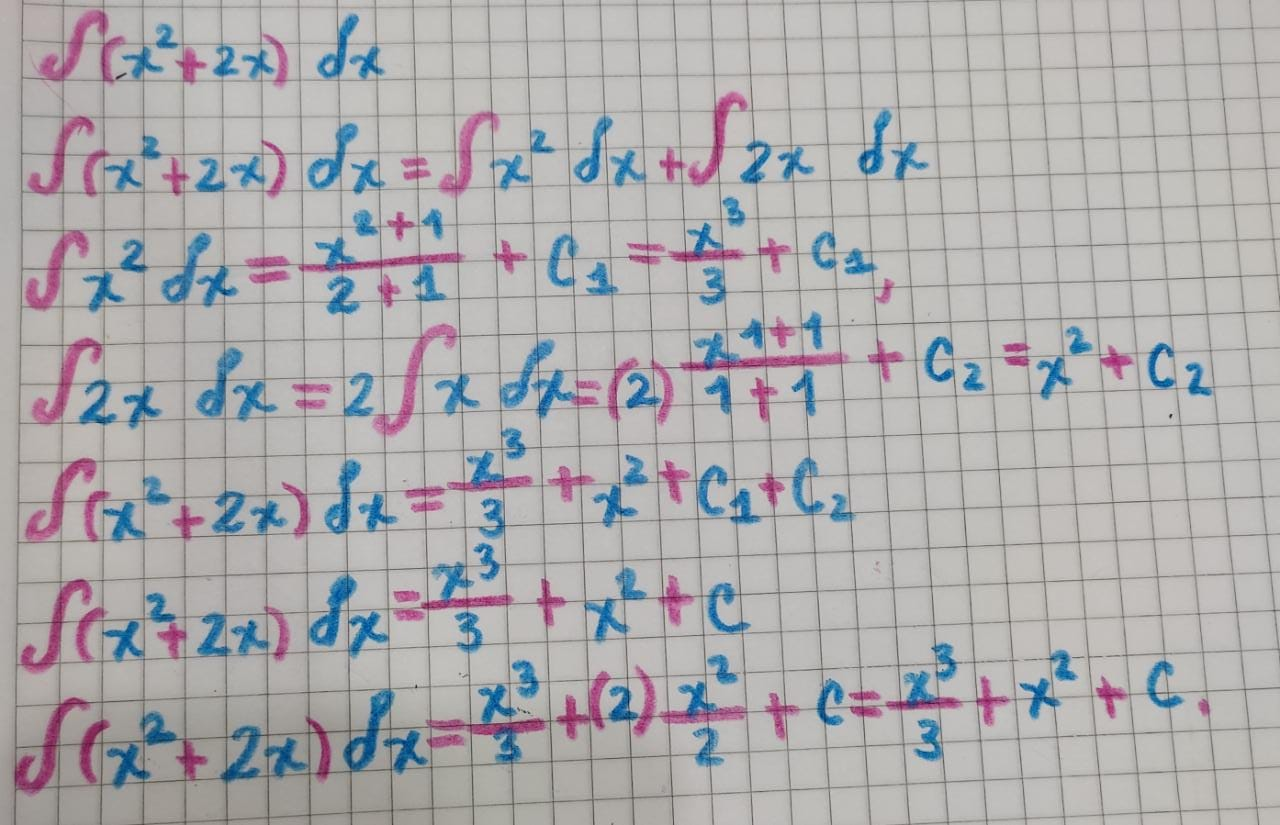 ∫(x² + 2x) dx
∫(x² + 2x) dx = ∫ x² dx + ∫ 2x dx
∫ x² dx = x²⁺¹/(2+1) + C₁ = x³/3 + C₁,
∫ 2x dx = 2∫ x dx = (2) x¹⁺¹/(1+1) + C₂ = x² + C₂
∫(x² + 2x) dx = x³/3 + x² + C₁ + C₂
∫(x² + 2x) dx = x³/3 + x² + C
∫(x² + 2x) dx = x³/3 + (2) x²/2 + C = x³/3 + x² + C.